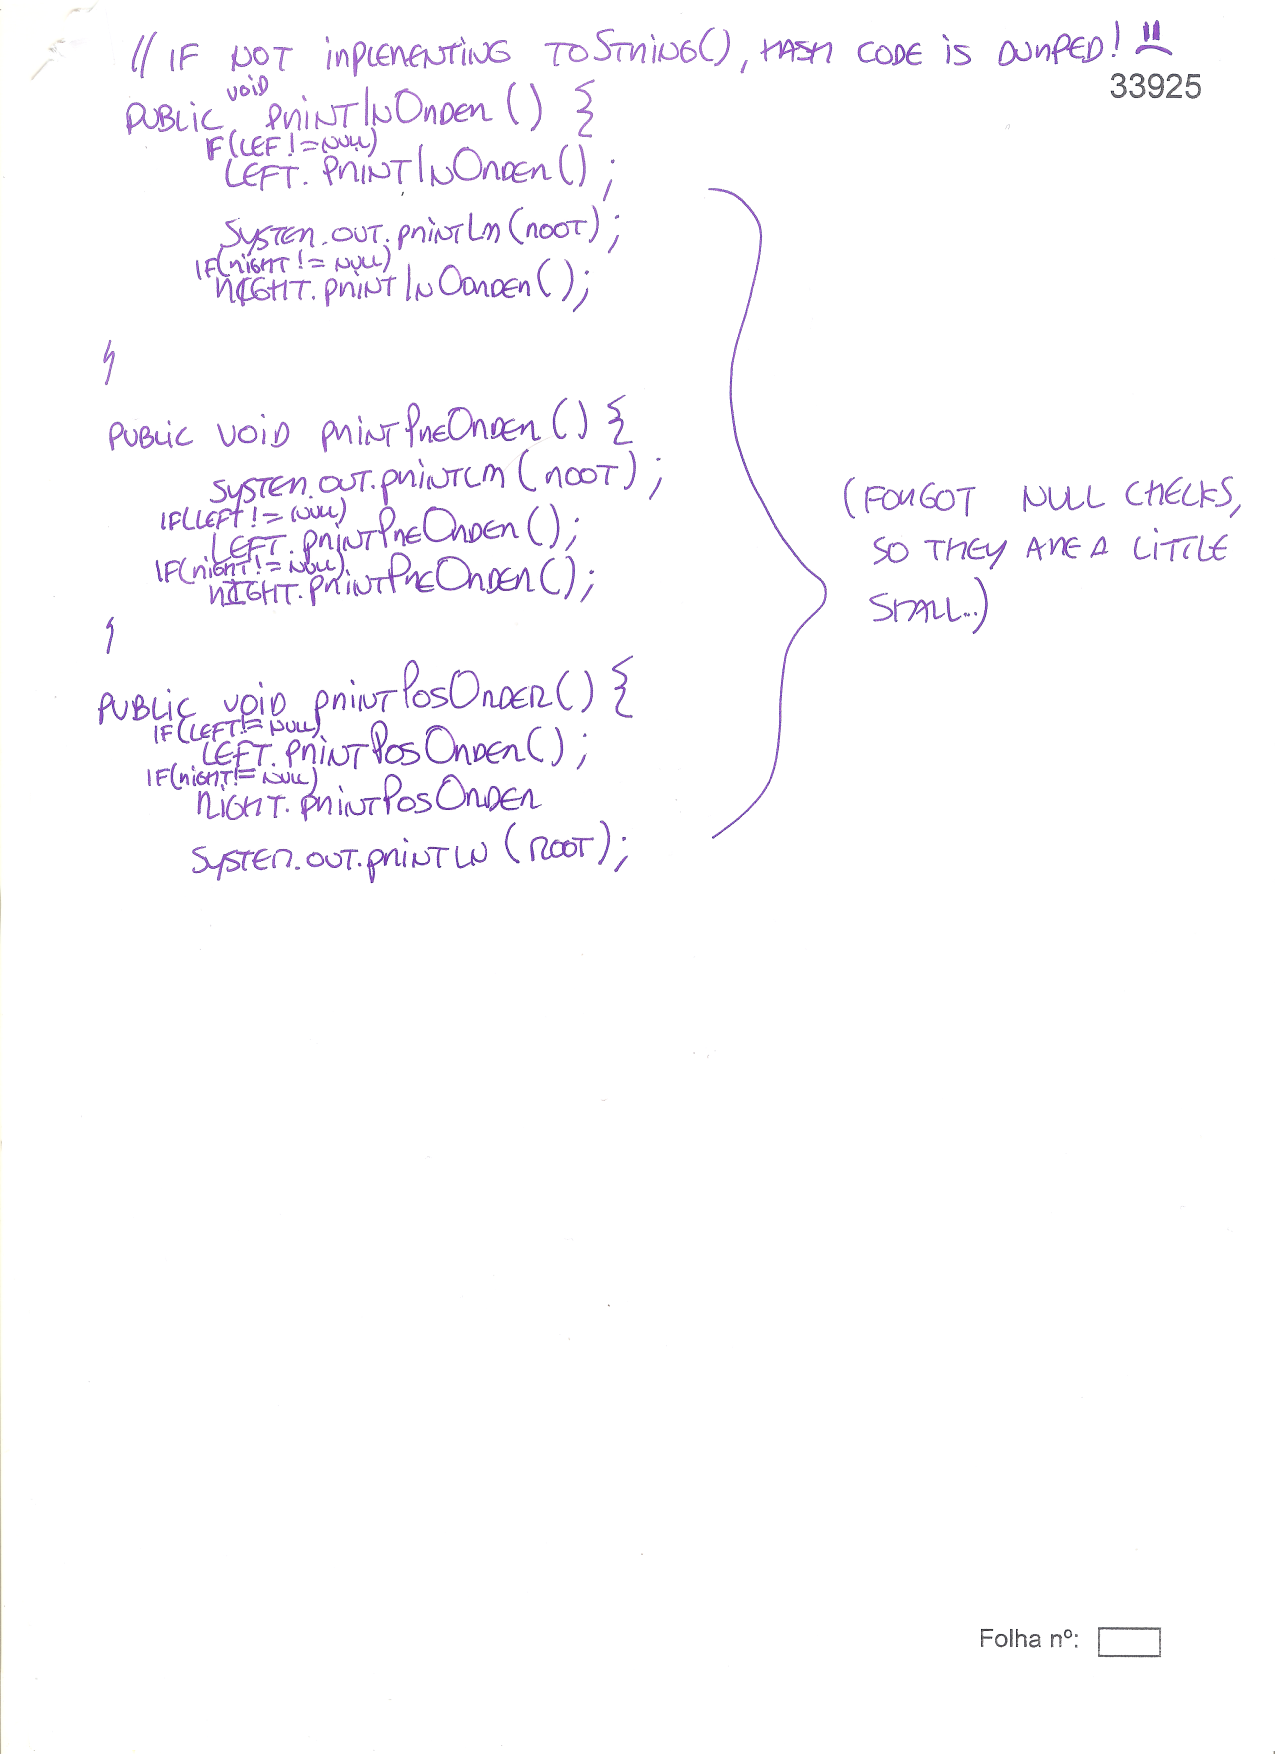 // IF NOT IMPLEMENTING TOSTRING(), HASH CODE IS DUMPED! :(
33925
PUBLIC void PRINTINORDER() {
IF(LEF != NULL)
LEFT.PRINTINORDER();
SYSTEM.OUT.PRINTLN(ROOT);
IF(RIGHT != NULL)
RIGHT.PRINTINORDER();
}
PUBLIC VOID PRINTPREORDER() {
SYSTEM.OUT.PRINTLN(ROOT);
IF(LEFT != NULL)
LEFT.PRINTPREORDER();
IF(RIGHT != NULL)
RIGHT.PRINTPREORDER();
}
(FORGOT NULL CHECKS,
SO THEY ARE A LITTLE
SMALL...)
PUBLIC VOID PRINTPOSORDER() {
IF(LEFT != NULL)
LEFT.PRINTPOSORDER();
IF(RIGHT != NULL)
RIGHT.PRINTPOSORDER
SYSTEM.OUT.PRINTLN(ROOT);
Folha nº: